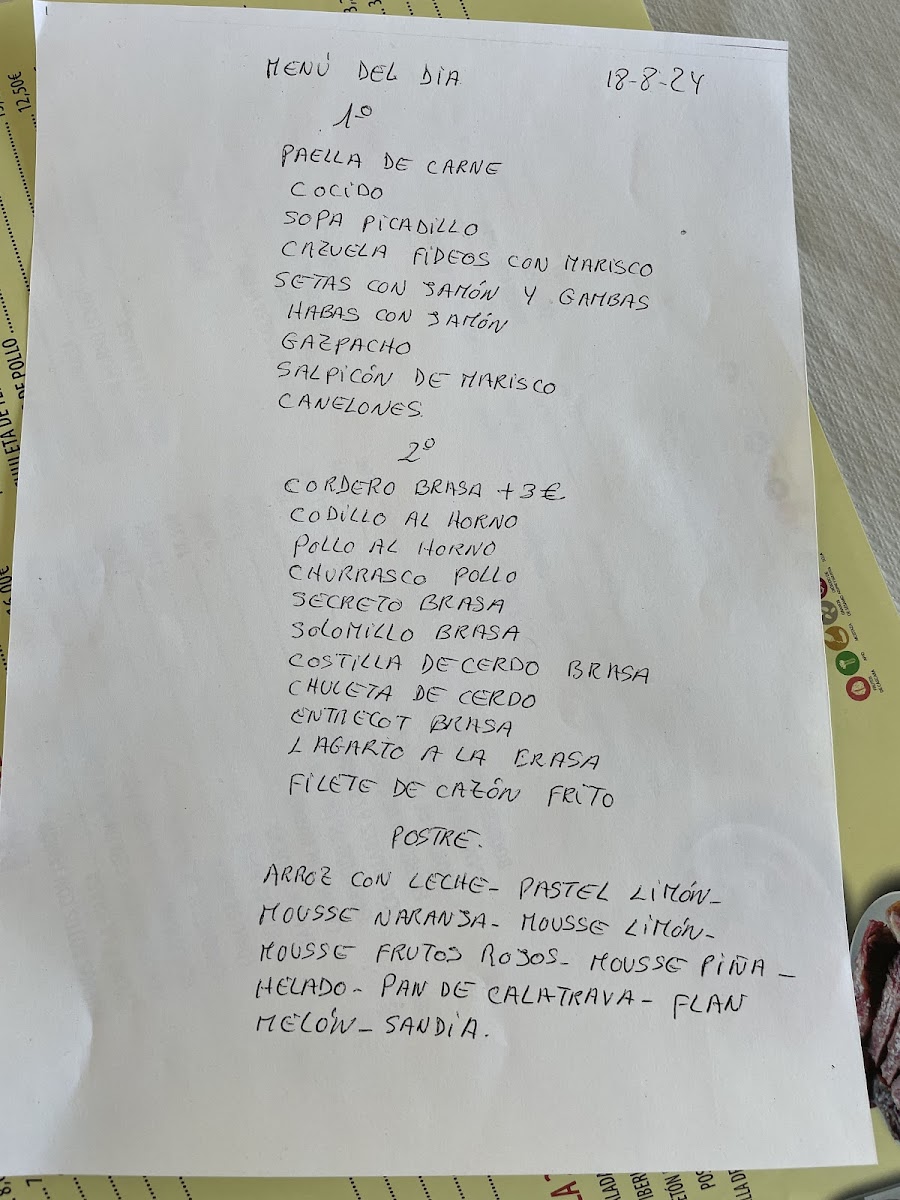 MENÚ DEL DIA 18-8-24
1º
PAELLA DE CARNE
COCIDO
SOPA PICADILLO
CAZUELA FIDEOS CON MARISCO
SETAS CON JAMÓN Y GAMBAS
HABAS CON JAMÓN
GAZPACHO
SALPICÓN DE MARISCO
CANELONES.
2º
CORDERO BRASA +3€
CODILLO AL HORNO
POLLO AL HORNO
CHURRASCO POLLO
SECRETO BRASA
SOLOMILLO BRASA
COSTILLA DE CERDO BRASA
CHULETA DE CERDO
ENTRECOT BRASA
LAGARTO A LA BRASA
FILETE DE CAZÓN FRITO
POSTRE.
ARROZ CON LECHE- PASTEL LIMÓN-
MOUSSE NARANJA- MOUSSE LIMÓN-
MOUSSE FRUTOS ROJOS- MOUSSE PIÑA -
HELADO- PAN DE CALATRAVA- FLAN
MELÓN- SANDIA.
12,50€
DE POLLO